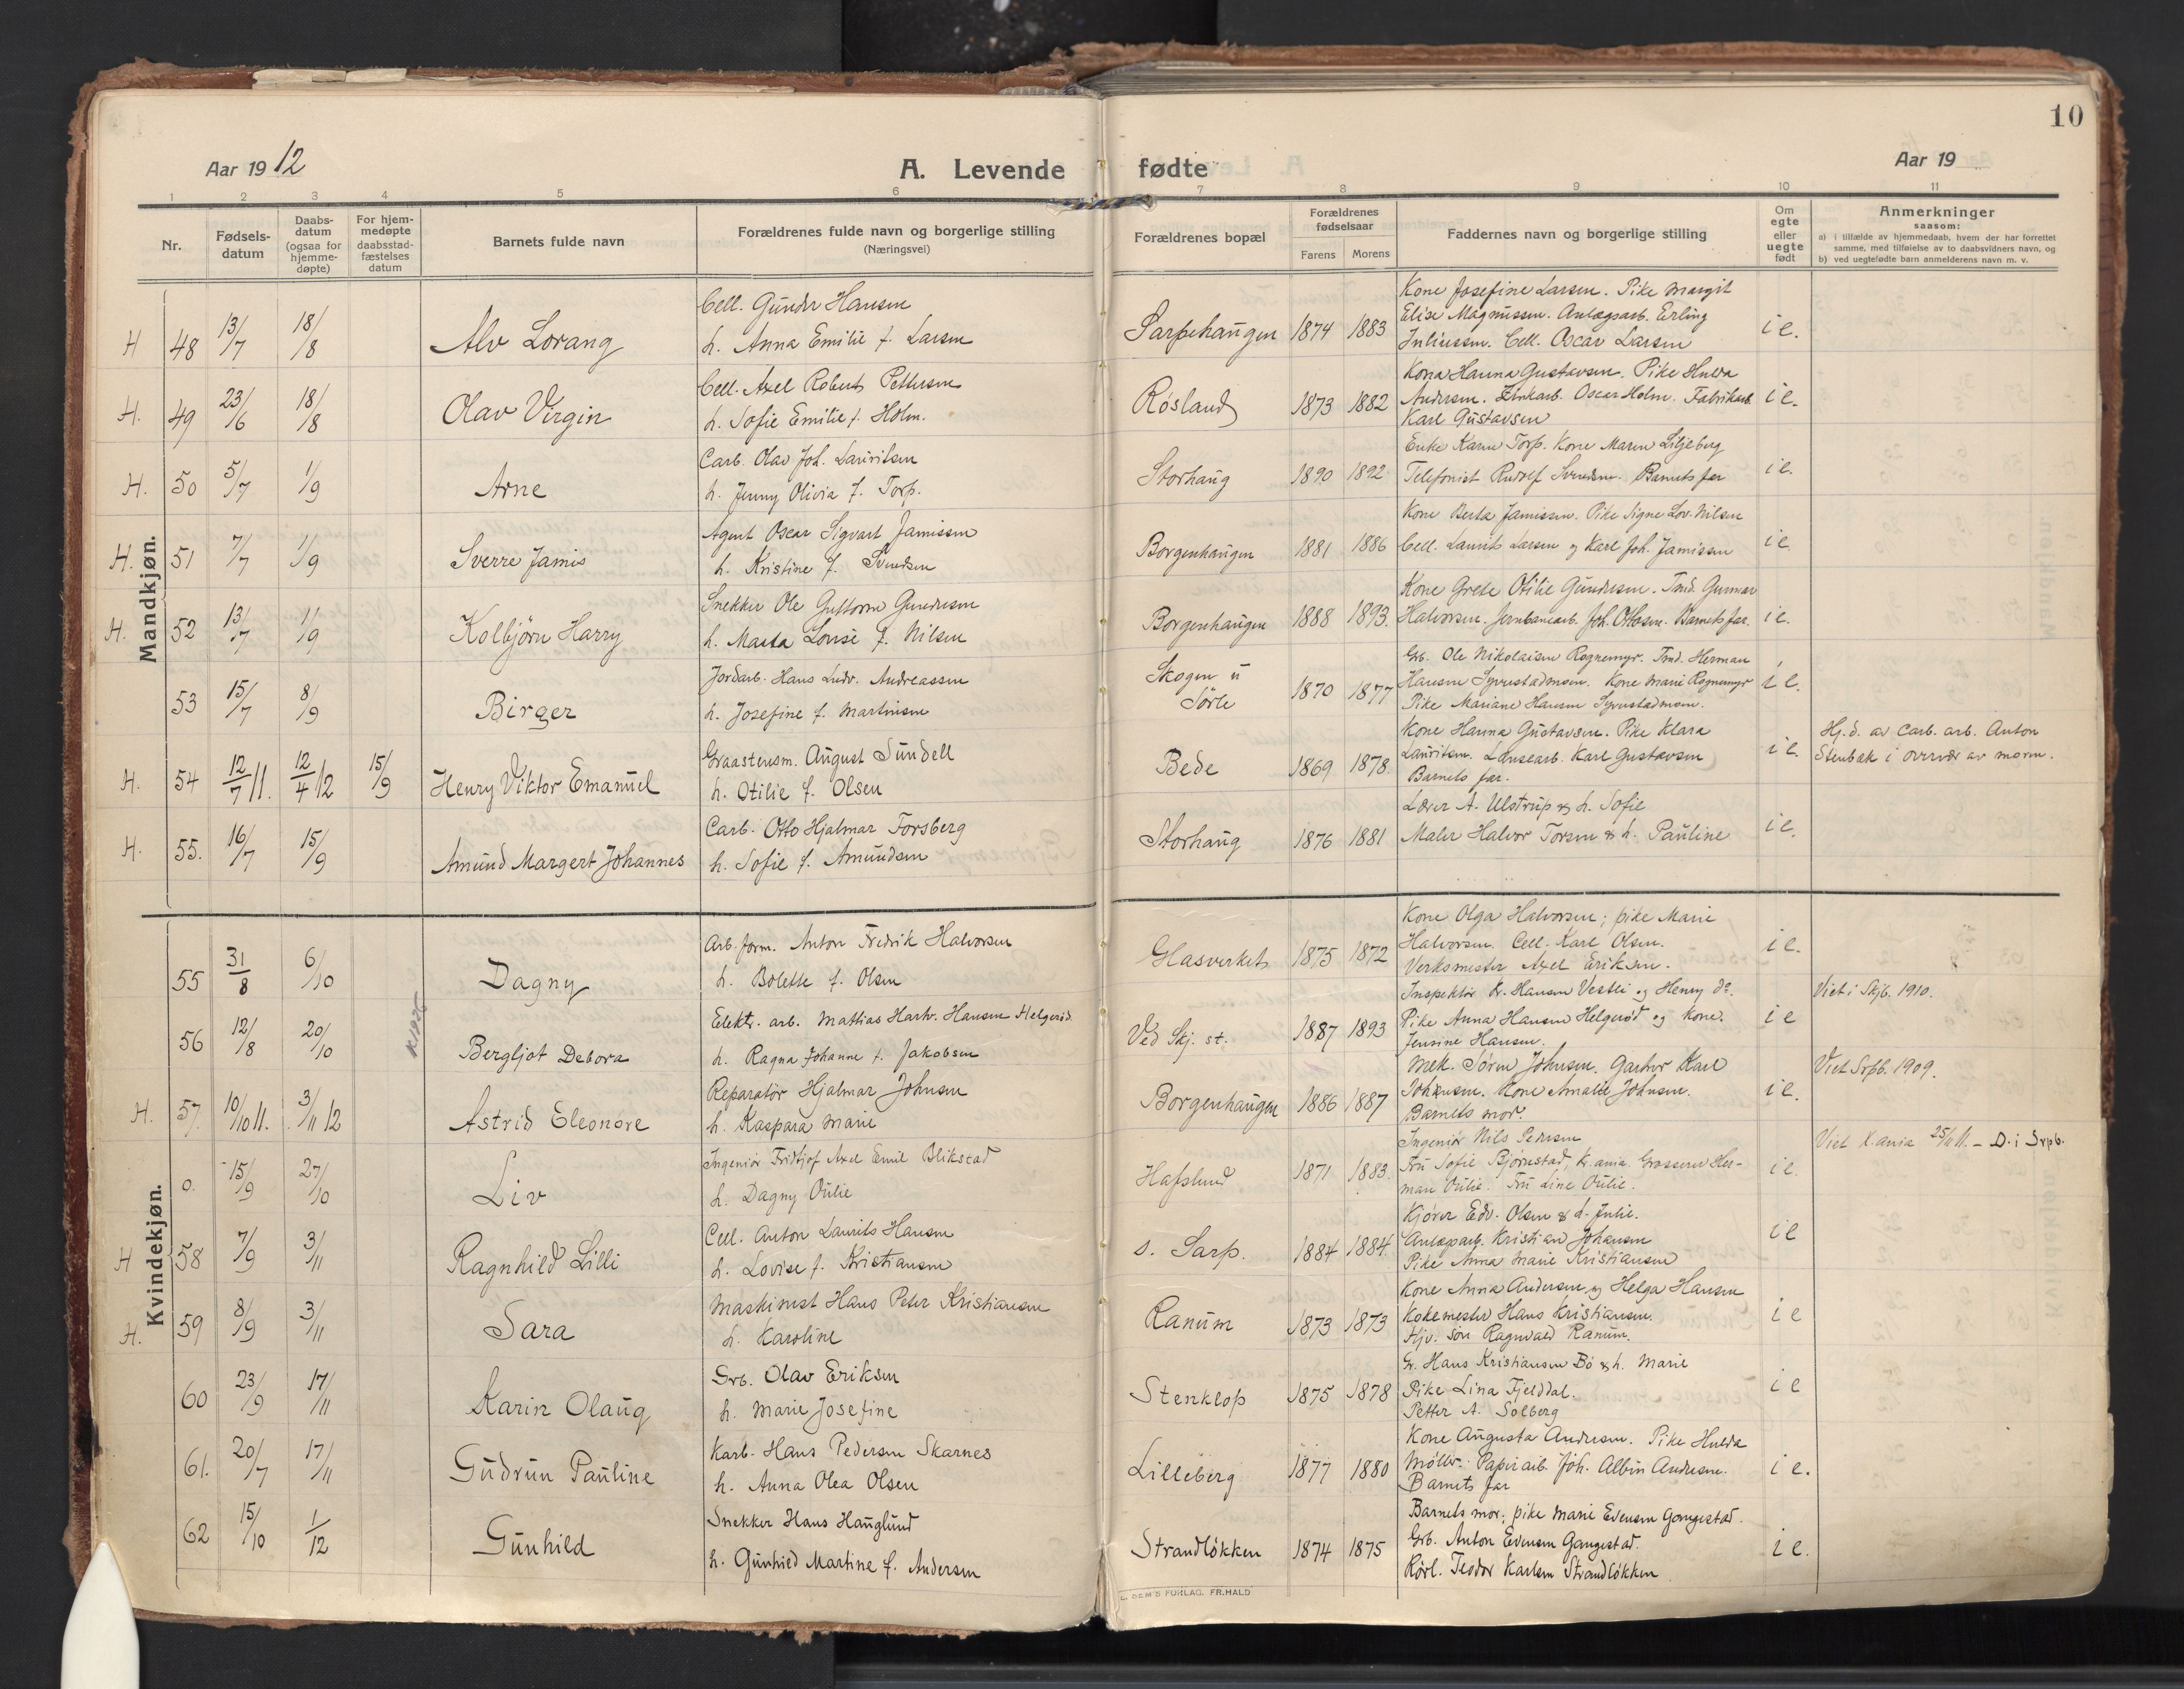 10
Aar 1912
A. Levende fødte
Aar 19
1 2 3 4 5 6 7 8 9 10 11
Nr.
Fødsels-
datum
Daabs-
datum
(ogsaa for
hjemme-
døpte)
For hjem-
medøpte
daabsstad-
fæstelses
datum
Barnets fulde navn
Forældrenes fulde navn og borgerlige stilling
(Næringsvei)
Forældrenes bopæl
Forældrenes
fødselsaar
Farens Morens
Faddernes navn og borgerlige stilling
Om
egte
eller
uegte
født
Anmerkninger
saasom:
a) i tilfælde av hjemmedaab, hvem der har forrettet
samme, med tilføielse av to daabsvidners navn, og
b) ved uegtefødte barn anmelderens navn m. v.
Mandkjøn.
H 48 13/7 18/8 Alv Lorang
Cell. Gunder Hansen
h. Anna Emilie f. Larsen
Sarpehaugen 1874 1883
Kone Josefine Larsen. Pike Margit
Elise Magnussen. Anlægsarb. Erling
Juliussen. Cell. Oscar Larsen
i e.
H. 49 23/6 18/8 Olav Virgin
Cell. Axel Robert Pettersen
h. Sofie Emilie f. Holm.
Røsland 1873 1882
Kona Hanna Gustavsen. Pike Hulda
Andersen. Zinkarb. Oscar Holm. Fabrikarb.
Karl Gustavsen
i e.
H. 50 5/7 1/9 Arne
Carb. Olav Joh. Lauritsen
h. Jenny Olivia f. Torp.
Storhaug 1890 1892
Enke Karen Torp. Kone Maren Liljeberg
Telefonist Rudolf Svendsen. Barnets far
i e.
H. 51 7/7 1/9 Sverre Jamis
Agent Oscar Sigvart Jamissen
h. Kristine f. Svendsen
Borgenhaugen 1881 1886
Kone Berta Jamissen. Pike Signe Lov. Nilsen
Cell. Laurits Larsen og Karl Joh. Jamissen
i e.
H. 52 13/7 1/9 Kolbjörn Harry
Snekker Ole Guttorm Gundersen
h. Marta Lovise f. Nilsen
Borgenhaugen 1888 1893.
Kone Grete Otilie Gundersen. Tmd. Gunnar
Halvorsen. Jernbanearb. Joh. Ottosen. Barnets far.
i e.
53 15/7 8/9 Birger
Jordarb. Hans Ludv. Andreassen
h. Josefine f. Martinsen
Skogen u
Sørle 1870 1877
Grb. Ole Nikolaisen Rognemyr. Tmd. Herman
Hansen Syverstadmoen. Kone Marie Rognemyr
Pike Mariane Hansen Syverstadmoen.
i e.
H. 54 12/7 11. 12/4 12 15/9 Henry Viktor Emanuel
Graastensm. August Sundell
h. Otilie f. Olsen
Bede 1869 1878.
Kone Hanna Gustavsen. Pike Klara
Lauritsen. Lansearb. Karl Gustavsen
Barnets far.
i e.
Hj.d. av Carb. arb. Anton
Stenbæk i overvær av moren.
H. 55. 16/7 15/9 Amund Margert Johannes
Carb. Otto Hjalmar Forsberg
h. Sofie f. Amundsen
Storhaug 1876 1881
Lærer A. Ulstrup & h. Sofie
Maler Halvor Torsen & h. Pauline
i e.
Kvindekjøn.
55 31/8 6/10 Dagny
Arb. form. Anton Fredrik Halvorsen
h. Bolette f. Olsen
Glasverket 1875 1872
Kone Olga Halvorsen; pike Marie
Halvorsen. Cell. Karl Olsen.
Verksmester Axel Eriksen.
i e.
56 12/8 20/10 Bergljot Debora
Elektr. arb. Mattias Hartv. Hansen Helgerød.
h. Ragna Johanne f. Jakobsen
Ved Skj. st. 1887 1893
Inspektør Kr. Hansen Vestli og Henry do.
Pike Anna Hansen Helgerød og kone.
Jensine Hansen.
i e
Viet i Skjb. 1910.
H. 57. 10/10 11. 3/11 12 Astrid Eleonore
Reparatør Hjalmar Johnsen
h. Kaspara Marie
Borgenhaugen 1886 1887
Mek. Søren Johnsen. Garver Karl
Johansen. Kone Amalie Johnsen.
Barnets mor.
i e.
Viet Srpb. 1909.
0. 15/9 27/10 Liv
Ingeniør Fridtjof Axel Emil Blikstad
h. Dagny Oulie
Hafslund 1871 1883.
Ingeniør Nils Pedersen
Fru Sofie Bjørnstad, Kr.ania. Grosserer Her-
man Oulie. Fru Line Oulie.
i e.
Viet K.ania 25/11 11. – D. i Srpb.
H 58 7/9 3/11 Ragnhild Lilli
Cell. Anton Laurits Hansen
h. Lovise f. Kristiansen
s. Sarp. 1884 1884.
Kjører Edv. Olsen & h. Julie.
Anlægsarb. Kristian Johansen
Pike Anna Marie Kristiansen
i e
H. 59 8/9 3/11 Sara
Maskinist Hans Peter Kristiansen
h. Karoline
Ranum 1873 1873
Kone Anna Andersen og Helga Hansen
Kokemester Hans Kristiansen.
Hjv. søn Ragnvald Ranum.
i e
60 23/9 17/11 Karin Olaug
Grb. Olav Eriksen
h. Marie Josefine
Stenklop 1875 1878
Gr. Hans Kristiansen Bö & h. Marie
Pike Lina Fjelddal.
Petter A. Solberg
i e
61. 20/7 17/11 Gudrun Pauline
Karb. Hans Pedersen Skarnes
h. Anna Olea Olsen
Lilleberg 1877 1880
Kone Augusta Andersen. Pike Hulda
Möller. Papirarb. Joh. Albin Andersen.
Barnets far
i e.
62 15/10 1/12 Gunhild
Snekker Hans Hauglund
h. Gunhild Martine f. Andersen
Strandløkken 1874 1875
Barnets mor; pike Marie Evensen Gangestad.
Grb. Anton Evensen Gangestad.
Rörl. Teodor Karlsen Strandløkken
i e.
FORLAG. FR.HALD